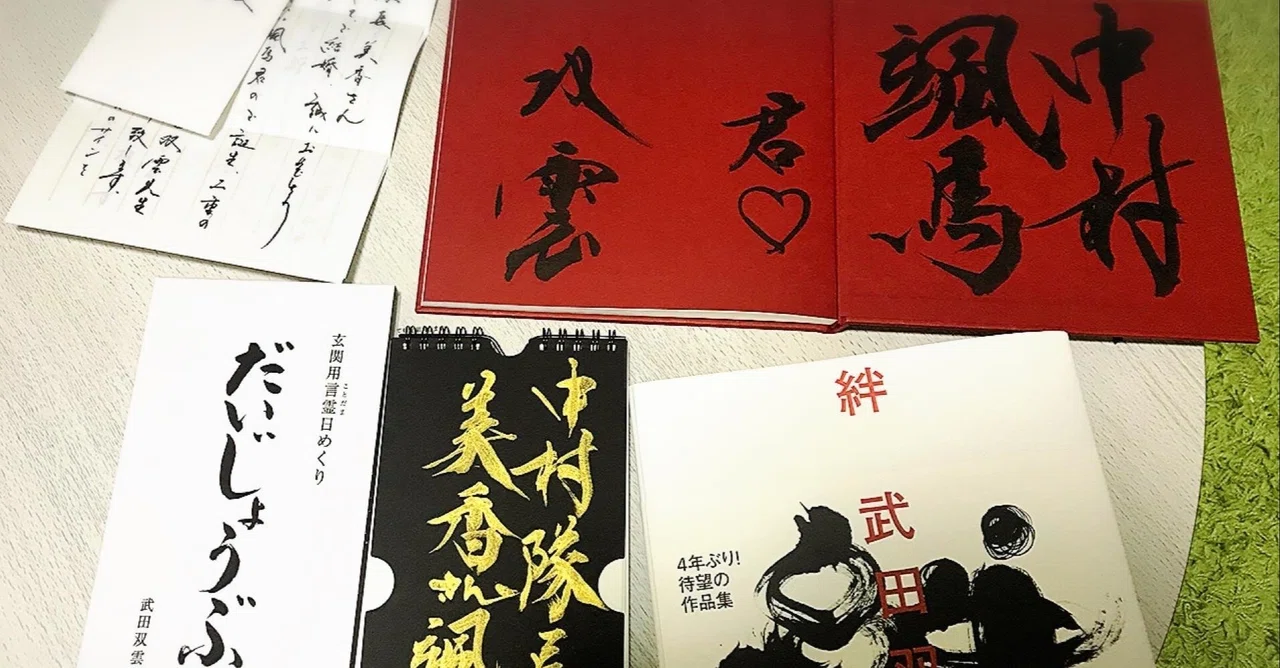 美香さん
ご結婚、誠におめでとう
颯馬君のご誕生、二重の
双雲先生
致します。
のサインを
中村
颯馬
君♡
双雲
玄関用言霊日めくり
ことだま
だいじょうぶ
武田双雲
中村隊長
美香さん颯
絆
武田双
4年ぶり!
待望の
作品集